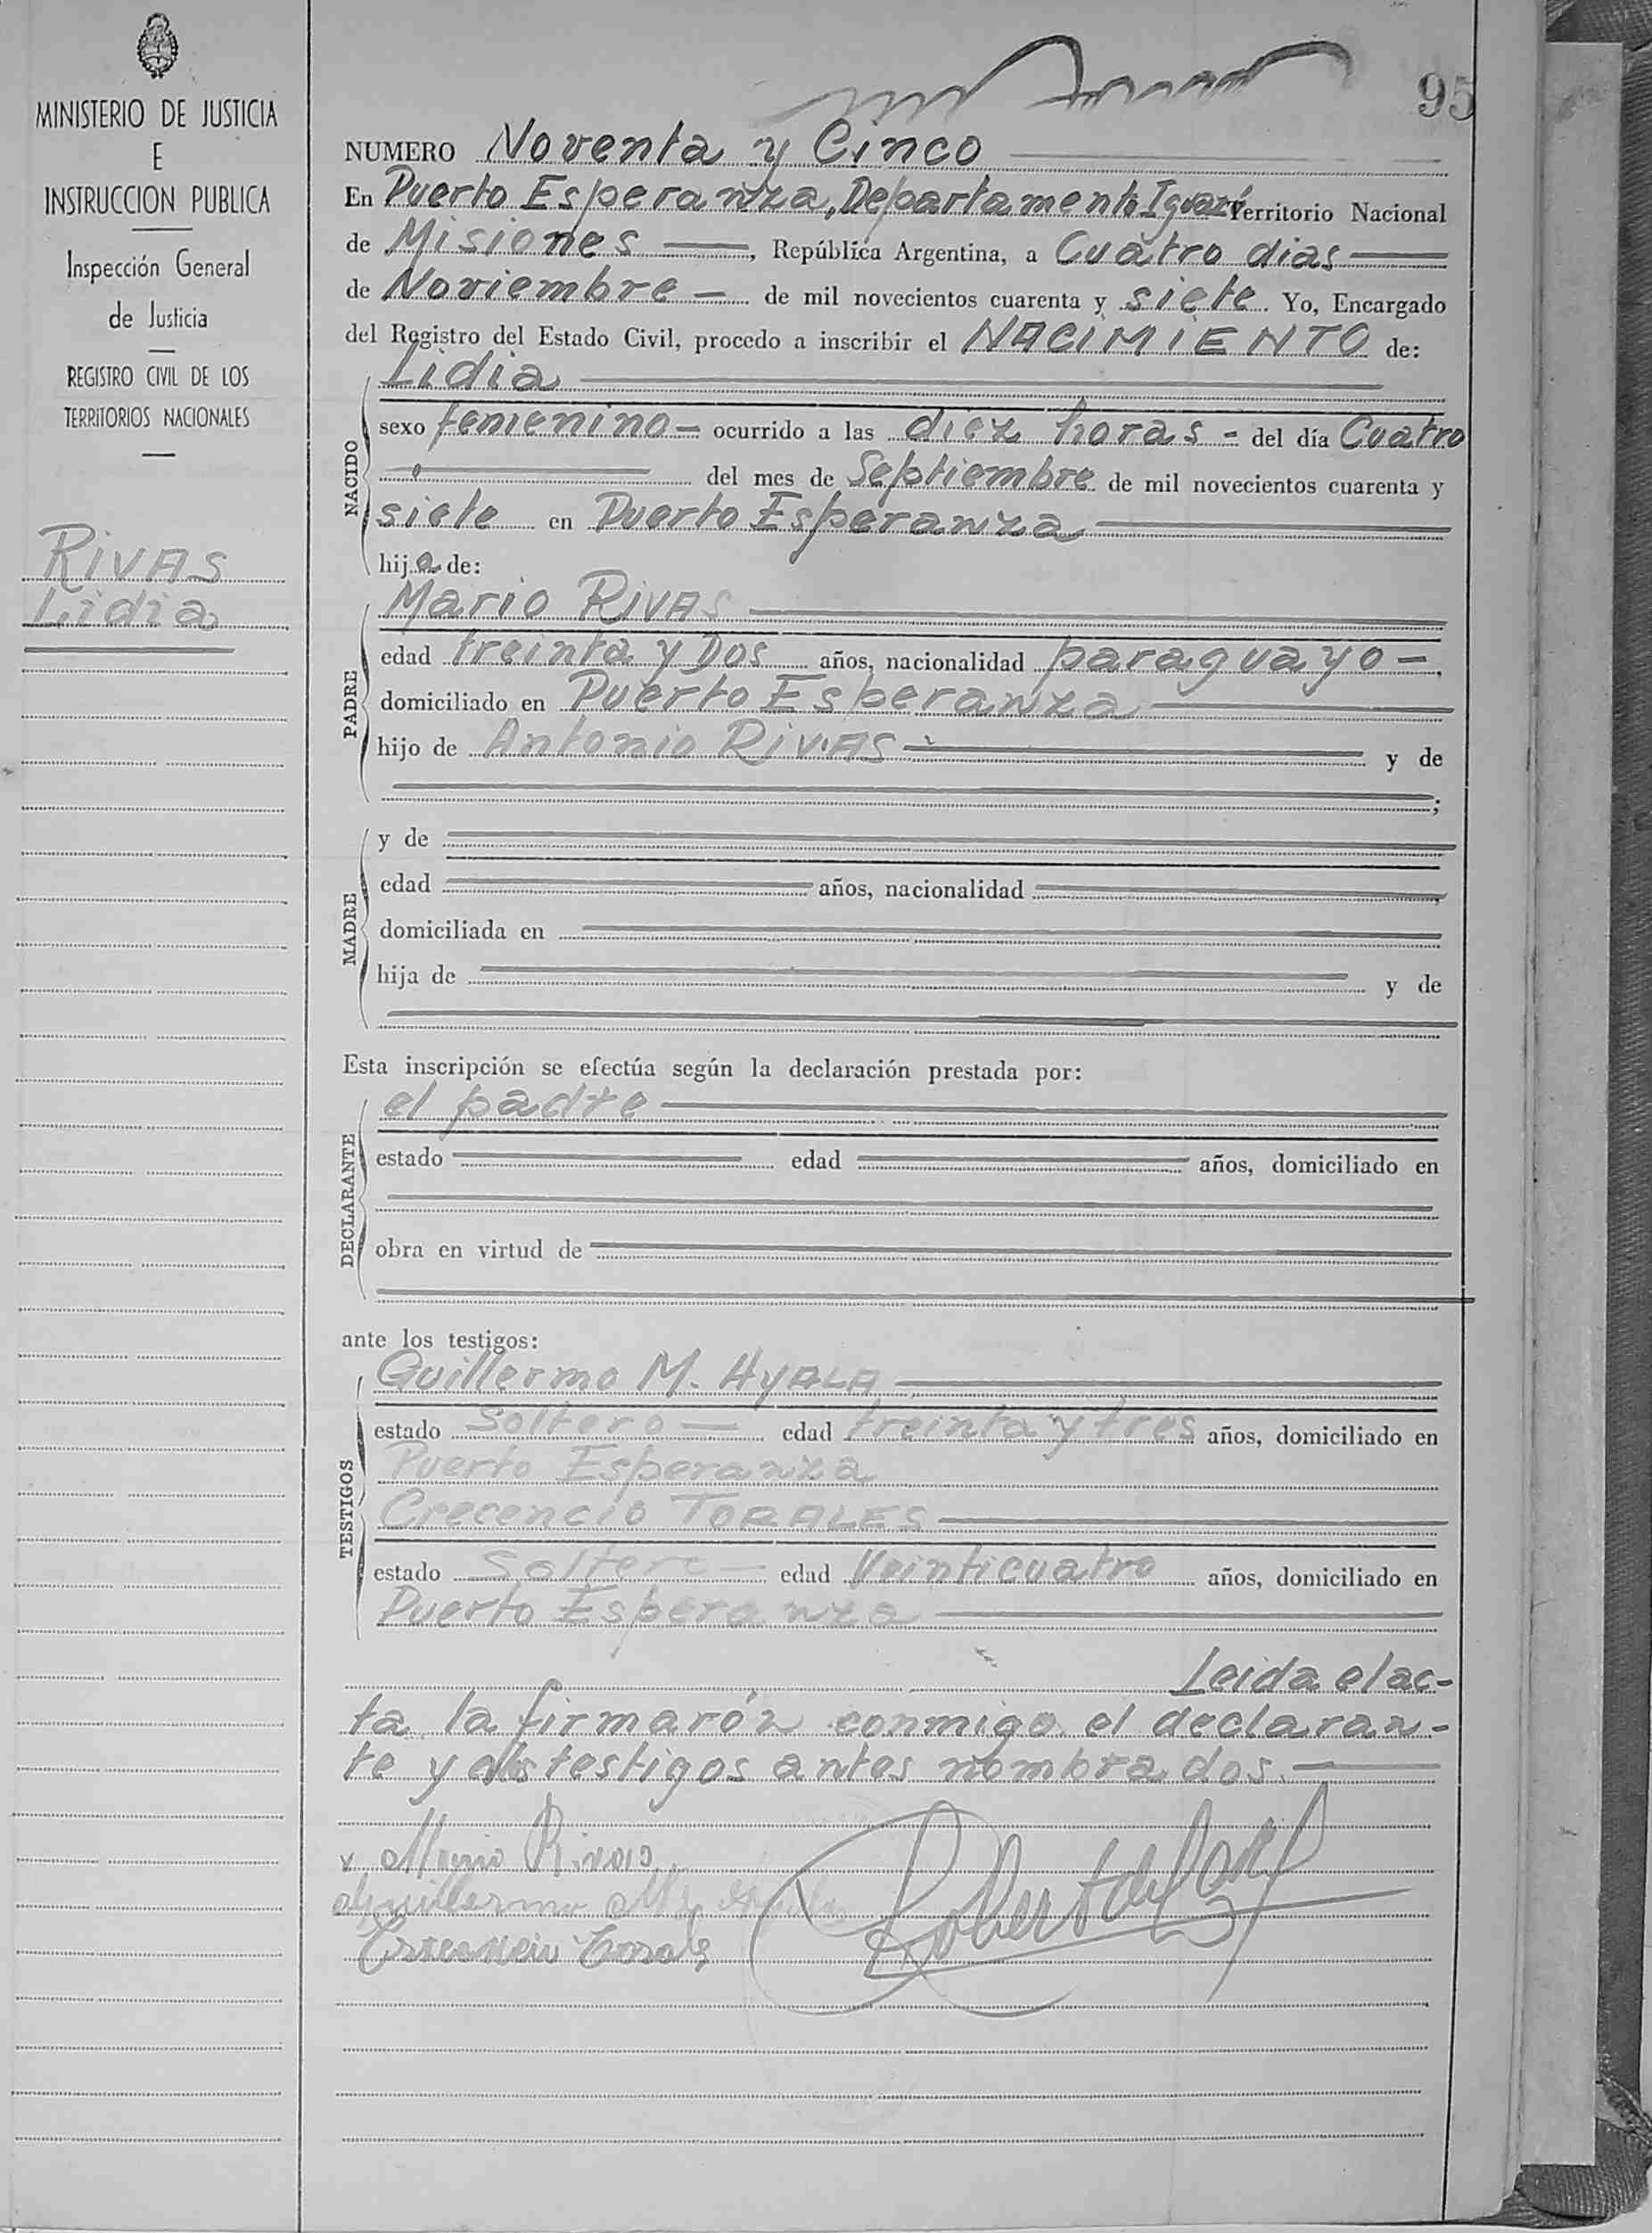 MINISTERIO DE JUSTICIA
E
INSTRUCCION PUBLICA
Inspección General
de Justicia
REGISTRO CIVIL DE LOS
TERRITORIOS NACIONALES
RIVAS
Lidia
95
NUMERO Noventa y Cinco
En Puerto Esperanza, Departamento Iguazú Territorio Nacional
de Misiones, República Argentina, a Cuatro dias
de Noviembre de mil novecientos cuarenta y siete. Yo, Encargado
del Registro del Estado Civil, procedo a inscribir el NACIMIENTO de:
NACIDO
Lidia
sexo femenino ocurrido a las diez horas del día Cuatro
del mes de Septiembre de mil novecientos cuarenta y
siete en Puerto Esperanza
hija de:
PADRE
Mario RIVAS
edad treinta y Dos años, nacionalidad paraguayo
domiciliado en Puerto Esperanza
hijo de Antonio RIVAS y de
;
MADRE
y de
edad años, nacionalidad
domiciliada en
hija de y de
Esta inscripción se efectúa según la declaración prestada por:
DECLARANTE
el padre
estado edad años, domiciliado en
obra en virtud de
ante los testigos:
TESTIGOS
Guillermo M. AyALA
estado soltero edad treinta y tres años, domiciliado en
Puerto Esperanza
Crecencio TORALES
estado soltero edad Veinticuatro años, domiciliado en
Puerto Esperanza
Leida el ac-
ta la firmarón conmigo el declaran-
te y los testigos antes nombrados.
Mario Rivas